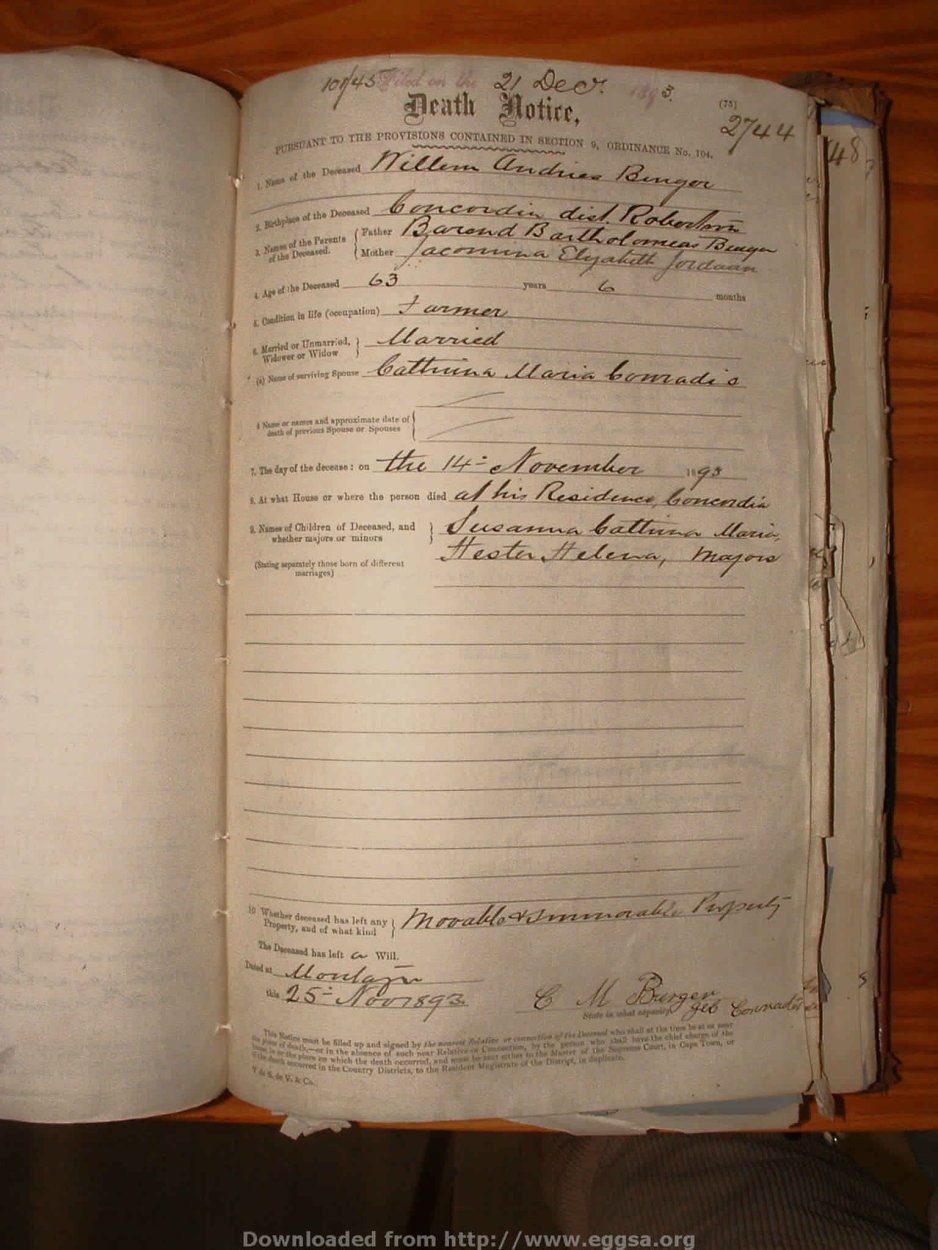 101/45 Filed on the 21 Decr. 1893.
(75)
Death Notice,
2744
PURSUANT TO THE PROVISIONS CONTAINED IN SECTION 9, ORDINANCE No. 104.
48
1. Name of the Deceased Willem Andries Burger
2. Birthplace of the Deceased Concordia dist. Robertson
3. Names of the Parents of the Deceased. { Father Barend Bartholomeas Burger
Mother Jacomina Elyabeth Jordaan
4. Age of the Deceased 63 years 6 months
5. Condition in life (occupation) Farmer
6. Married or Unmarried, Widower or Widow } Married
(a) Name of surviving Spouse Cathrina Maria Conradis
b Name or names and approximate date of death of previous Spouse or Spouses {
7. The day of the decease: on the 14th November 1893
8. At what House or where the person died at his Residence, Concordia
9. Names of Children of Deceased, and whether majors or minors } Susanna Cathrina Maria,
Hester Helena, majors
(Stating separately those born of different marriages)
10 Whether deceased has left any Property, and of what kind } Movable & Immovable Property
The Deceased has left a Will.
Dated at Montagu
this 25th Nov 1893
C M Burger
State in what capacity geb Conradis
This Notice must be filled up and signed by the nearest Relative or connection of the Deceased who shall at the time be at or near
the place of death,—or in the absence of such near Relative or Connection, by the person who shall have the chief charge of the
house in or the place on which the death occurred, and must be sent either to the Master of the Supreme Court, in Cape Town, or
if the death occurred in the Country Districts, to the Resident Magistrate of the District, in duplicate.
V de S. de V. & Co.
Downloaded from http://www.eggsa.org